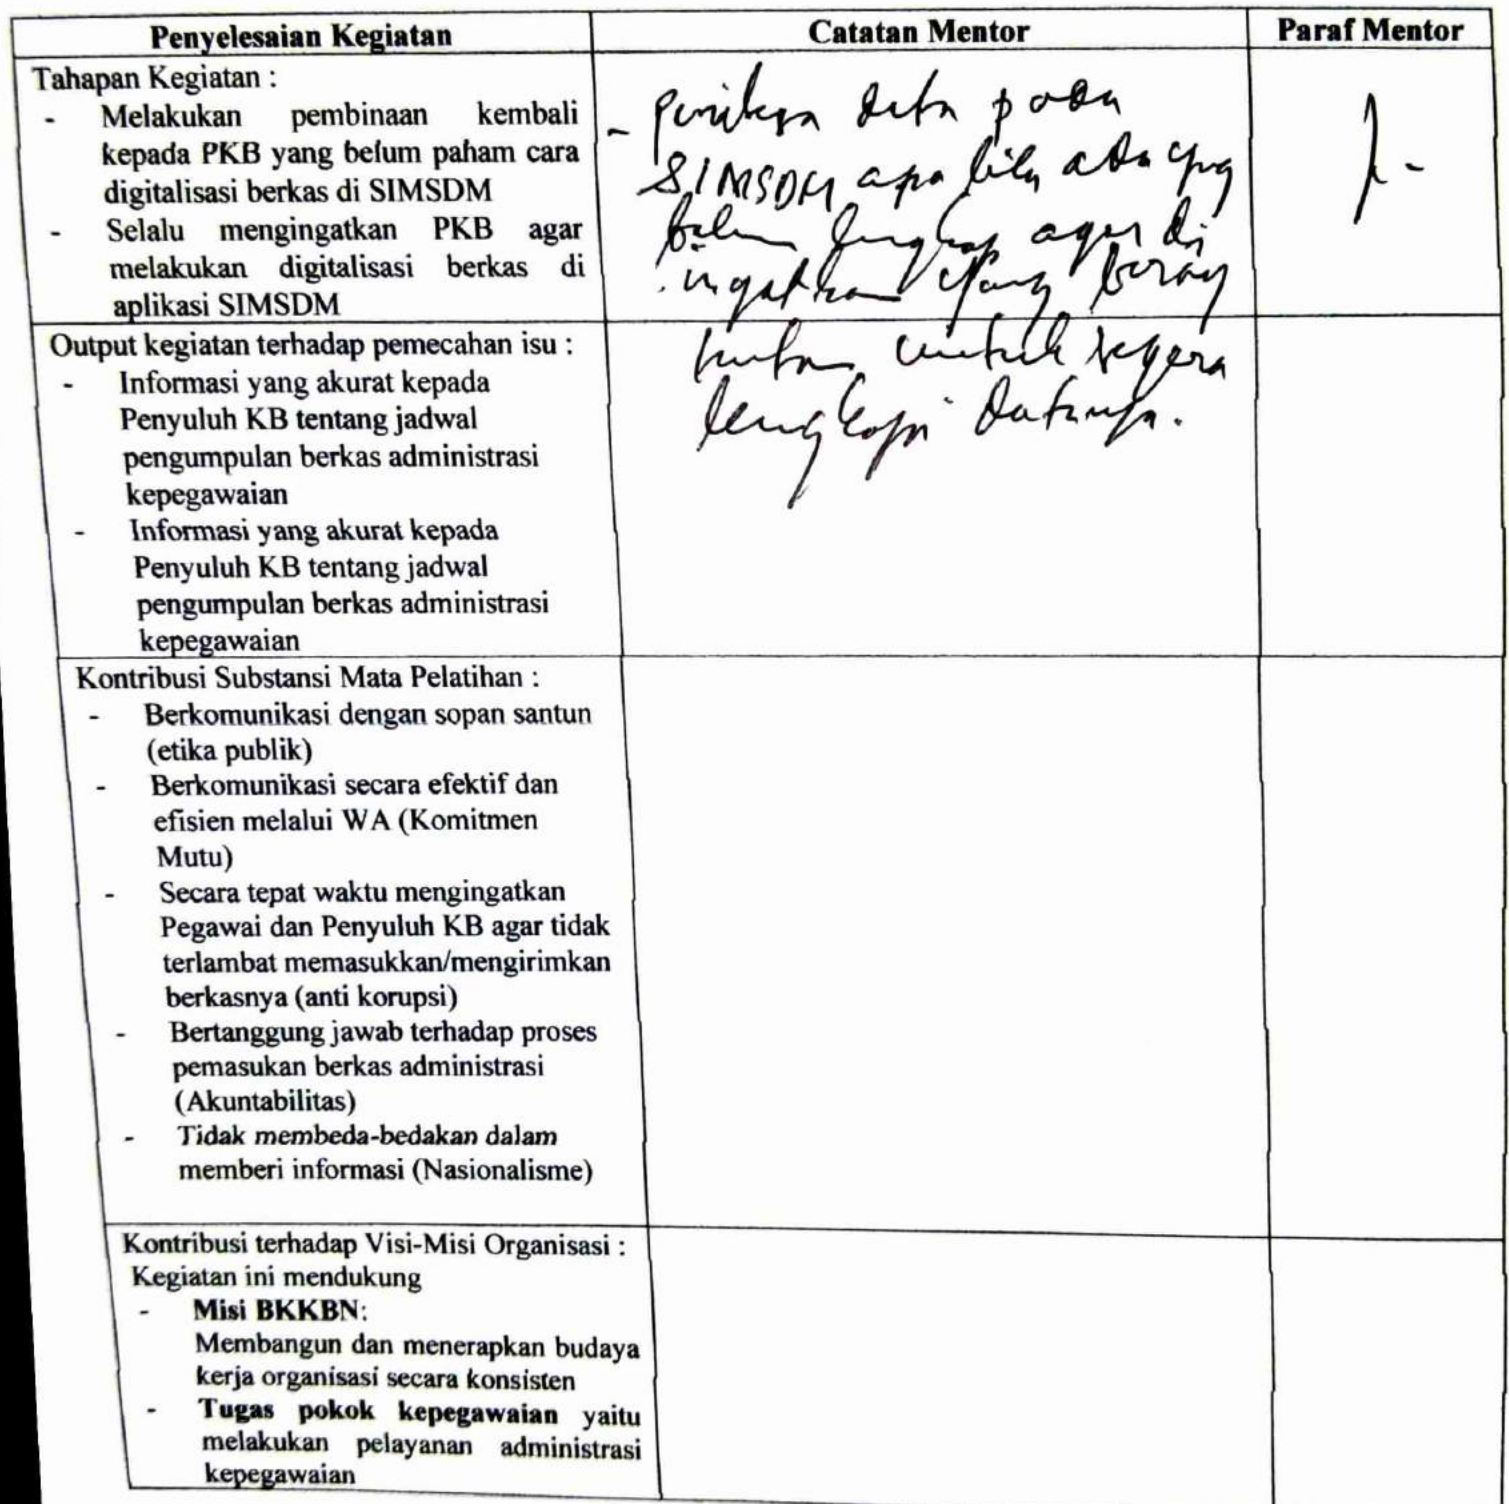 Penyelesaian Kegiatan
Catatan Mentor
Paraf Mentor
Tahapan Kegiatan :
- Melakukan pembinaan kembali
kepada PKB yang belum paham cara
digitalisasi berkas di SIMSDM
- Selalu mengingatkan PKB agar
melakukan digitalisasi berkas di
aplikasi SIMSDM
- periksa data pada
SIMSDM apabila ada yng
belum lengkap agar di
ingatkan yang
untuk segera
lengkapi datanya.
Output kegiatan terhadap pemecahan isu :
- Informasi yang akurat kepada
Penyuluh KB tentang jadwal
pengumpulan berkas administrasi
kepegawaian
- Informasi yang akurat kepada
Penyuluh KB tentang jadwal
pengumpulan berkas administrasi
kepegawaian
Kontribusi Substansi Mata Pelatihan :
- Berkomunikasi dengan sopan santun
(etika publik)
- Berkomunikasi secara efektif dan
efisien melalui WA (Komitmen
Mutu)
- Secara tepat waktu mengingatkan
Pegawai dan Penyuluh KB agar tidak
terlambat memasukkan/mengirimkan
berkasnya (anti korupsi)
- Bertanggung jawab terhadap proses
pemasukan berkas administrasi
(Akuntabilitas)
- Tidak membeda-bedakan dalam
memberi informasi (Nasionalisme)
Kontribusi terhadap Visi-Misi Organisasi :
Kegiatan ini mendukung
- Misi BKKBN:
Membangun dan menerapkan budaya
kerja organisasi secara konsisten
- Tugas pokok kepegawaian yaitu
melakukan pelayanan administrasi
kepegawaian